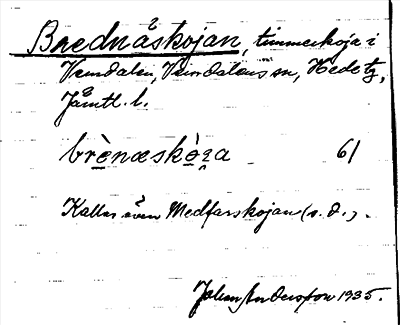 Brednåskojan, timmerkoja i
Vemdalen, Vemdalens sn, Hede tg,
Jämtl. l.
brènæskòʒa 61
Kallas även Medfarskojan (s. d.).
Johan Andersson 1935.